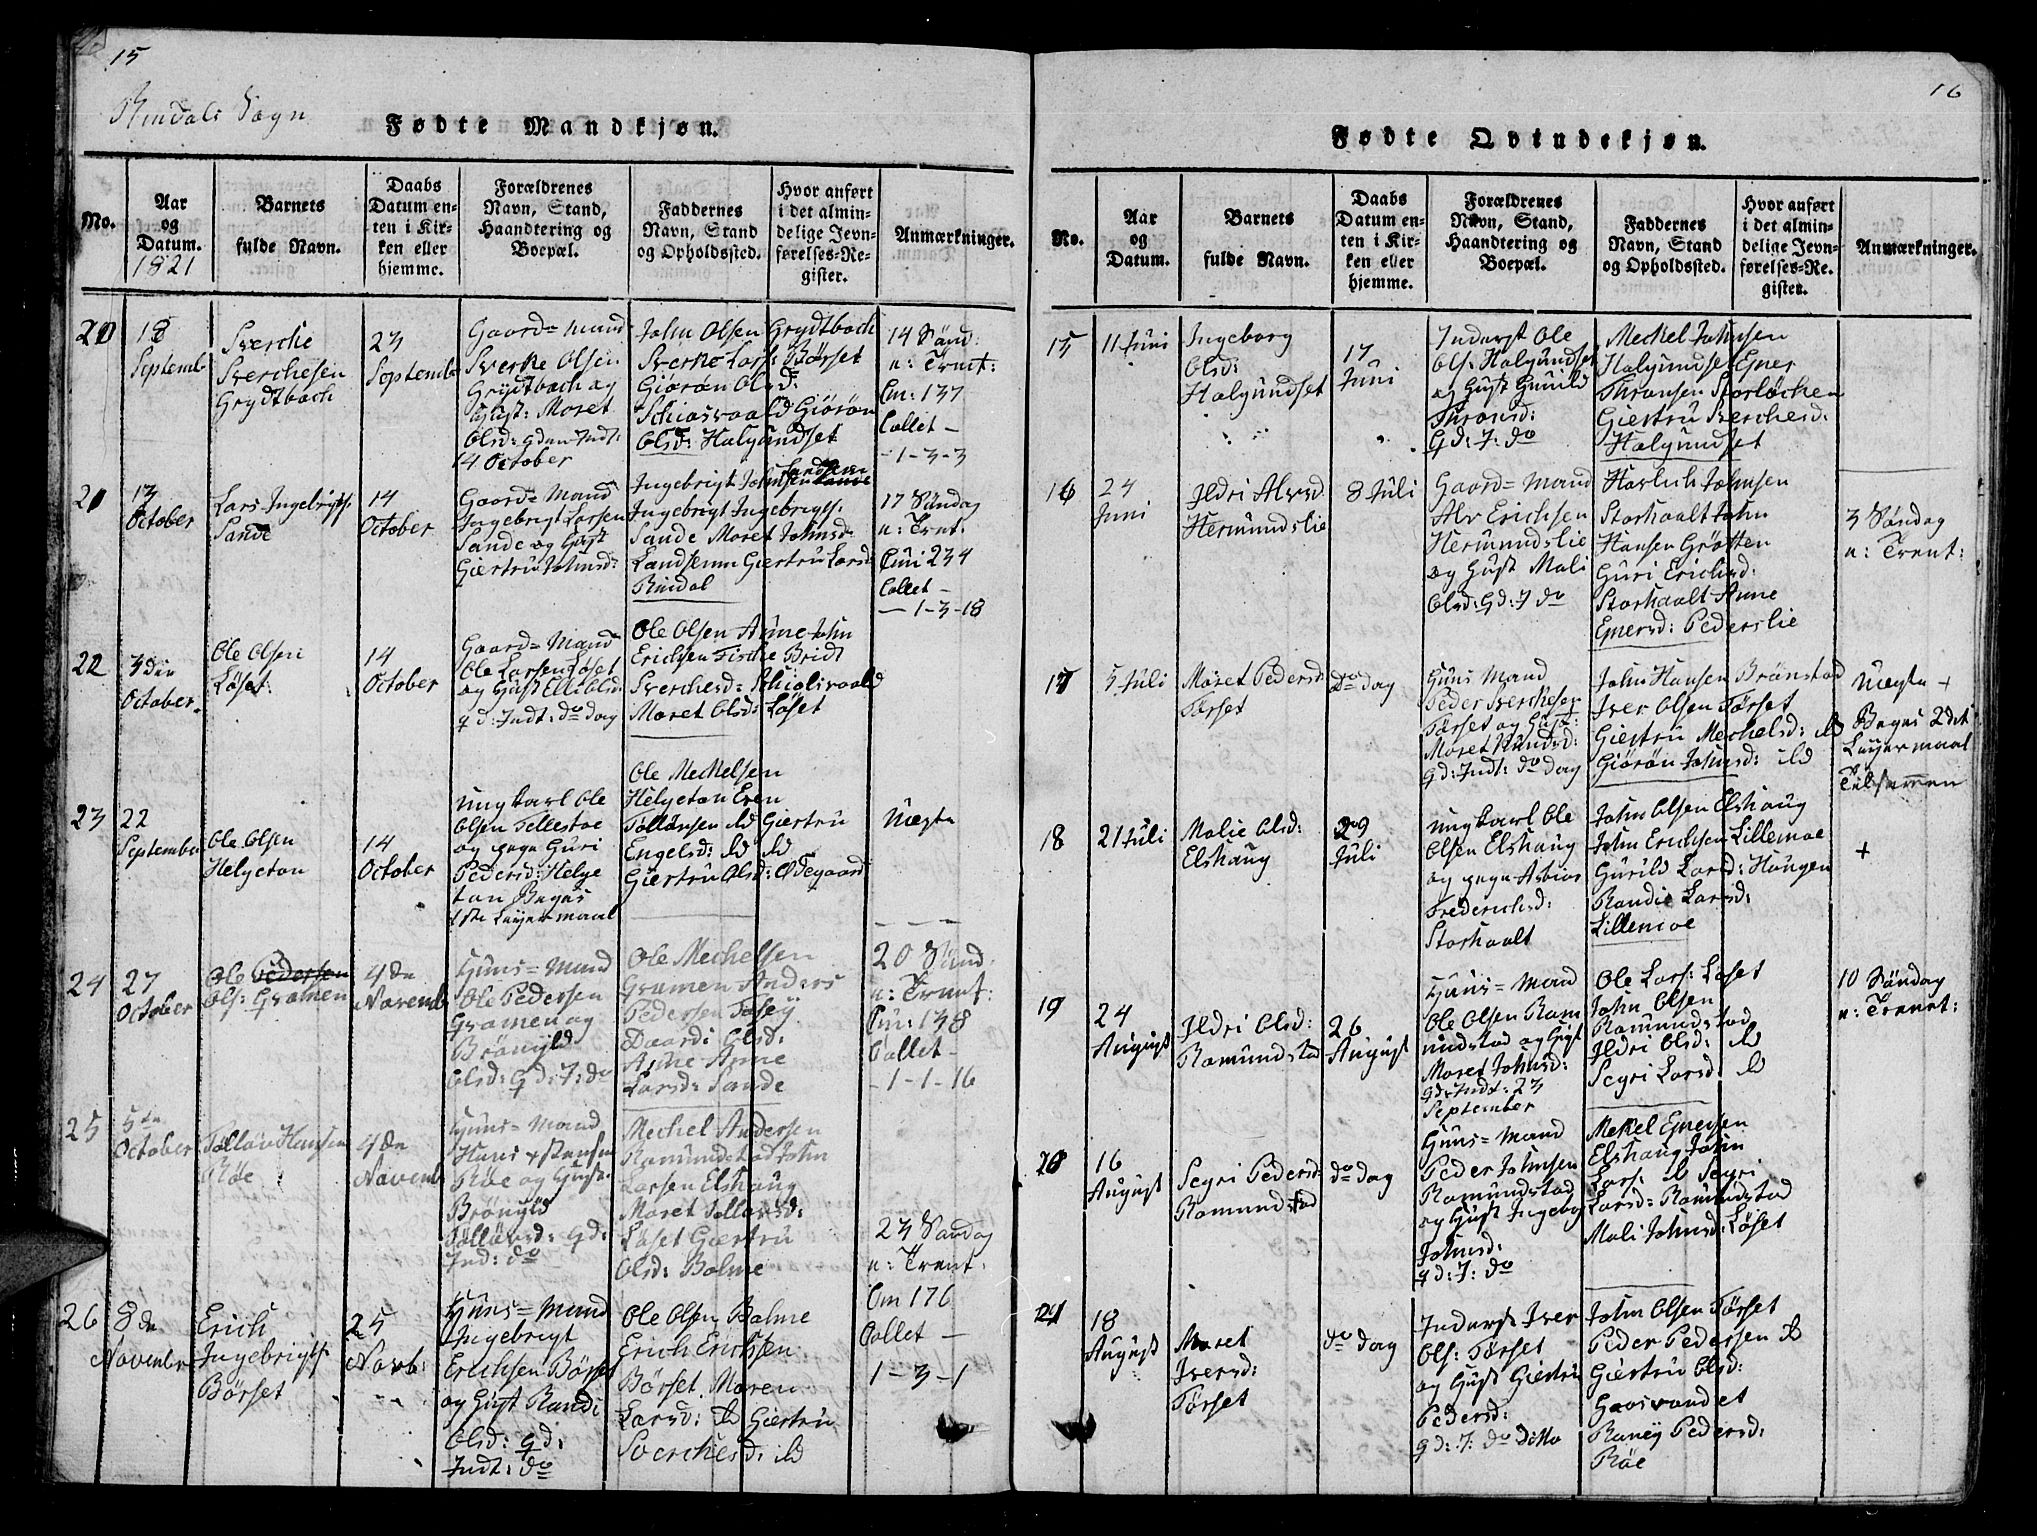 15
Rindals Sogn
Fødte Mandkjøn.
No.
Aar
og
Datum.
1821
Barnets
fulde Navn.
Daabs
Datum en-
ten i Kir-
ken eller
hjemme.
Forældrenes
Navn, Stand,
Haandtering og
Boepæl.
Faddernes
Navn, Stand
og Opholdssted.
Hvor anført
i det almin-
delige Jevn-
førelses-Re-
gister.
Anmærkninger.
20
18
Septemb
Sverche
Sverchesen
Grydtbach
23
Septemb
Gaard=mand
Sverke Olsen
Grydtbach og
Hust: Moret
Olsd: gd en Indt:
14 October
John Olsen Grydtbach
Sverke Lars: Børset
Giørøn Olsd:
Schiosvaald Giørøn
Olsd: Halgundset
14 Sønd
n: Trnt:
Cm: 137
Collet –
– 1-3-3
21
13
October
Lars Ingebrigts.
Sande
14
October
Gaard=Mand
Ingebrigt Larsen
Sande og Hust
Giertru Johnsd:
Ingebrigt Johnsen
Landsem
Ingebrigt Ingebrigts.
Sande Moret Johnsd:
Landsemm Giertru Larsd
Rindal
17 Søndag
n: Trnt.
Cm: 234
Collet –
– 1-3-18
22
3 den
October
Ole Olsen
Løset
14
October
Gaard=Mand
Ole Larsen Løset
og Hust Elli Olsd:
gd: Indt: do dag
Ole Olsen Anne John
Erichsen Fiske Bridt
Sverchesd: Schiolsvaald
Moret Olsd: Løset
23
22
September
Ole Olsen
Helgeton
14
October
Ungkarl Ole
Olsen Tellestoe
og pige Guri
Pedersd: Helge
ton Beges
1ste Leyermaal
Ole Mechelsen
Helgeton Even
Tolløvsen ibd Giertru
Engelsd: ibd ibd
Giertru Olsd: Ødegaard
Uægte
24
27
October
Ole Pedersen
Ols: Gramen
4 de
Novemb
Huus=Mand
Ole Pedersen
Gramen og
Brønyld
Olsd: Gd: J: do
Ole Mechelsen
Gramen Anders
Pedersen
Daardi Olsd:
Anne Anne
Larsd: Sande
20 Sønd
n: Trnt:
Cm: 138
Collet –
– 1-1-16
25
5te
October
Tølløv Hansen
Røe
4 de
Novemb
Huus=Mand
Hans
Røe og Hust
Brønyld
Tølløvsd: Gd:
Ind: do
Mechel Andersen
Romundstad John
Larsen Elshaug
Moret Tollovsd:
Løset Giertru
Olsd: Bolme
26
8 de
November
Erich
Ingebrigts.
Børset
25
Novb:
Huus=Mand
Ingebrigt
Erichsen Børset
og Hust Randi
Olsd: gd:
Indt: do
Ole Olsen Bolme
Erich Erichsen
Børset Maren
Larsd: ib Giertru
Sverchesd: ibd
23 Søndag
n: Trnt:
Cm 176
Collet –
1-3-1
16
Fødte Qvindekjøn.
No.
Aar
og
Datum.
Barnets
fulde Navn.
Daabs
Datum en-
ten i Kir-
ken eller
hjemme.
Forældrenes
Navn, Stand,
Haandtering og
Boepæl.
Faddernes
Navn, Stand
og Opholdssted.
Hvor anført
i det almin-
delige Jevn-
førelses-Re-
gister.
Anmærkninger.
15
11 Juni
Ingeborg
Olsd:
Halgundset
17
Juni
Inderst Ole
Ols: Halgundset
og Hust Gunild
Tronsd:
Gd: J: do
Mechel Johnsen
Halgundset Ener
Thronsen Storløchen
Giertru Sverchesd:
Halgundset
16
24
Juni
Ildri Alvsd
Hermundslie
8 Juli
Gaard=Mand
Alv Erichsen
Hermundslie
og Hust Mali
Olsd: Gd: J do
Havlich Johnsen
Storhaalt John
Hansen Grøtten
Guri Erichsd:
Storhaalt Anne
Enersd: Pederslie
3 Søndag
n: Trent:
17
5 Juli
Moret Pedersd
Tørset
do dag
Huus Mand
Peder Sverkesen
Tørset og Hust:
Moret Knudsd:
gd: Indt: do dag
John Hansen Brønstad
Iver Olsen Tørset
Giertru Mechelsd: ibd
Giørøn Johnsd: ibd
Uægte +
Beges 2det
Leyermaal
Tilsamen
18
21 Juli
Malie Olsd:
Elshaug
29
Juli
Ungkarl Ole
Olsen Elshaug
og pige Asbiør
Frederichsd:
Storhaalt
John Olsen Elshaug
John Erichsen Lillemoe
Gurild Larsd: Haugen
Randie Larsd:
Lillemoe
+
19
24
August
Ildri Olsd:
Romundstad
26
August
Huus=Mand
Ole Olsen Rom
undstad og Hust
Moret Johnsd:
gd: Indt: 23
September
Ole Lars: Løset
John Olsen
Romundstad
Ildri Olsd: ibd
Segri Larsd: ibd
10 Søndag
n: Trenet:
20
16
August
Segri Pedersd
Romundstad
do dag
Huus=Mand
Peder Johnsen
Romundstad
og Hust Ingebog
Johnsd:
gd: J: do
Mekel Enersen
Elshaug John
Lars: ib Segri
Larsd: Romundstad
Mali Johnsd: Løset
21
18
August
Moret
Iversd:
Tørset
do dag
Inderst Iver
Ols: Tørset
og Hust Giertru
Pedersd:
gd: J: do ditto
John Olsen Tørset
Peder Pedersen ib
Giertru Olsd:
Gaasvandet
Raney Pedersd:
Røe